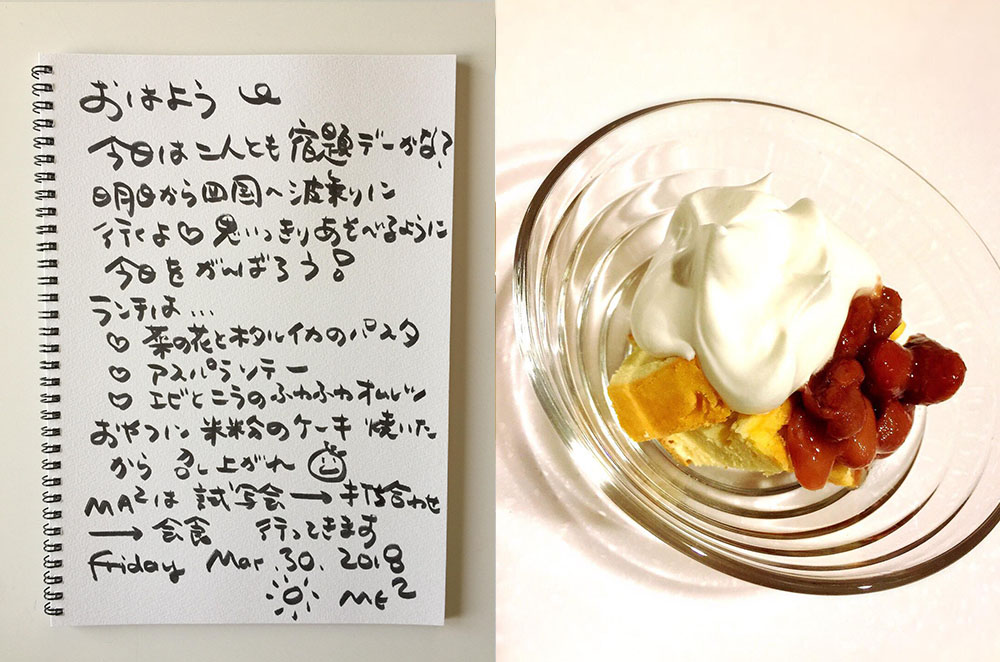 おはよう
今日は二人とも宿題デーかな?
明日から四国へ波乗りに
行くよ♡思いっきりあそべるように
今日をがんばろう!
ランチは...
♡ 菜の花とホタルイカのパスタ
♡ アスパラソテー
♡ エビとニラのふわふわオムレツ
おやつに米粉のケーキ焼いた
から召し上がれ
MA²は試写会→打合わせ
→会食 行ってきます
Friday Mar.30.2018